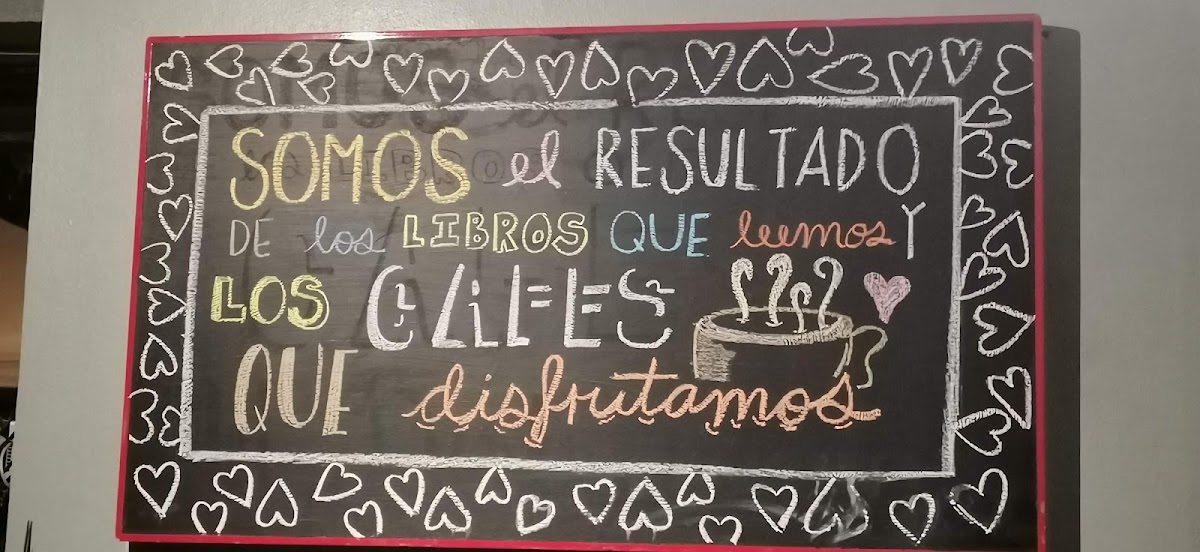 SOMOS el RESULTADO
DE los LIBROS QUE leemos Y
LOS CAFES
QUE disfrutamos